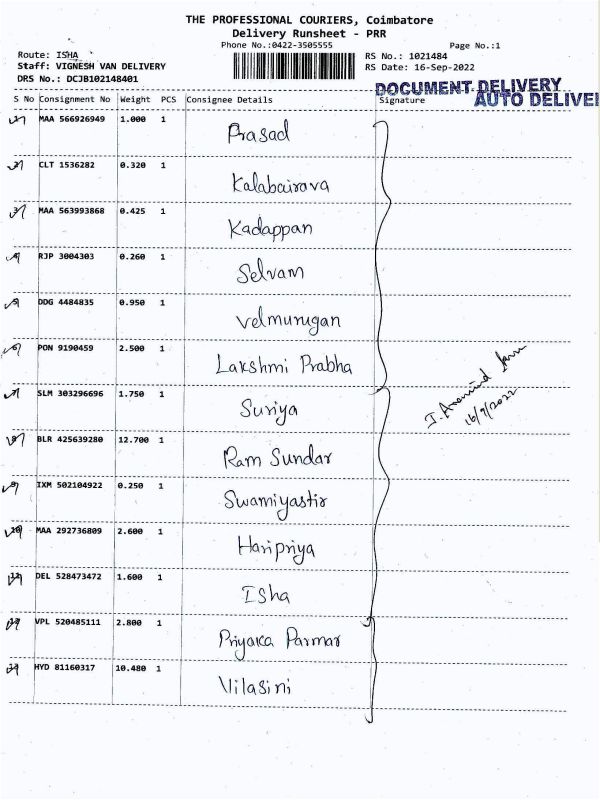 THE PROFESSIONAL COURIERS, Coimbatore
Delivery Runsheet - PRR
Phone No.:0422-3505555 Page No.:1
Route: ISHA RS No.: 1021484
Staff: VIGNESH VAN DELIVERY RS Date: 16-Sep-2022
DRS No.: DCJB102148401
DOCUMENT DELIVERY
AUTO DELIVE
S No Consignment No Weight PCS Consignee Details Signature
1 MAA 566926949 1.000 1 Prasad
2 CLT 1536282 0.320 1 Kalabairava
3 MAA 563993868 0.425 1 Kadappan
4 RJP 3004303 0.260 1 Selvam
5 DDG 4484835 0.950 1 Velmurugan
6 PON 9190459 2.500 1 Lakshmi Prabha
7 SLM 303296696 1.750 1 Suriya
8 BLR 425639280 12.700 1 Ram Sundar
9 IXM 502104922 0.250 1 Swamiyastir
10 MAA 292736809 2.600 1 Haripriya
11 DEL 528473472 1.600 1 Isha
12 VPL 520485111 2.800 1 Priyaka Parmar
13 HYD 81160317 10.480 1 Vilasini
J. Aravind
16/9/2022